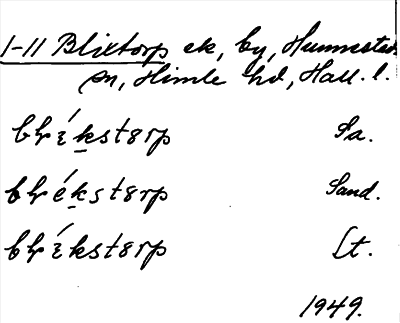 1-11 Blixtorp ek, by, Hunnestads
sn, Himle hd, Hall. l.
blíkstɜrp Sa.
blékstɜrp Sand.
blíkstɜrp Lt.
1949.